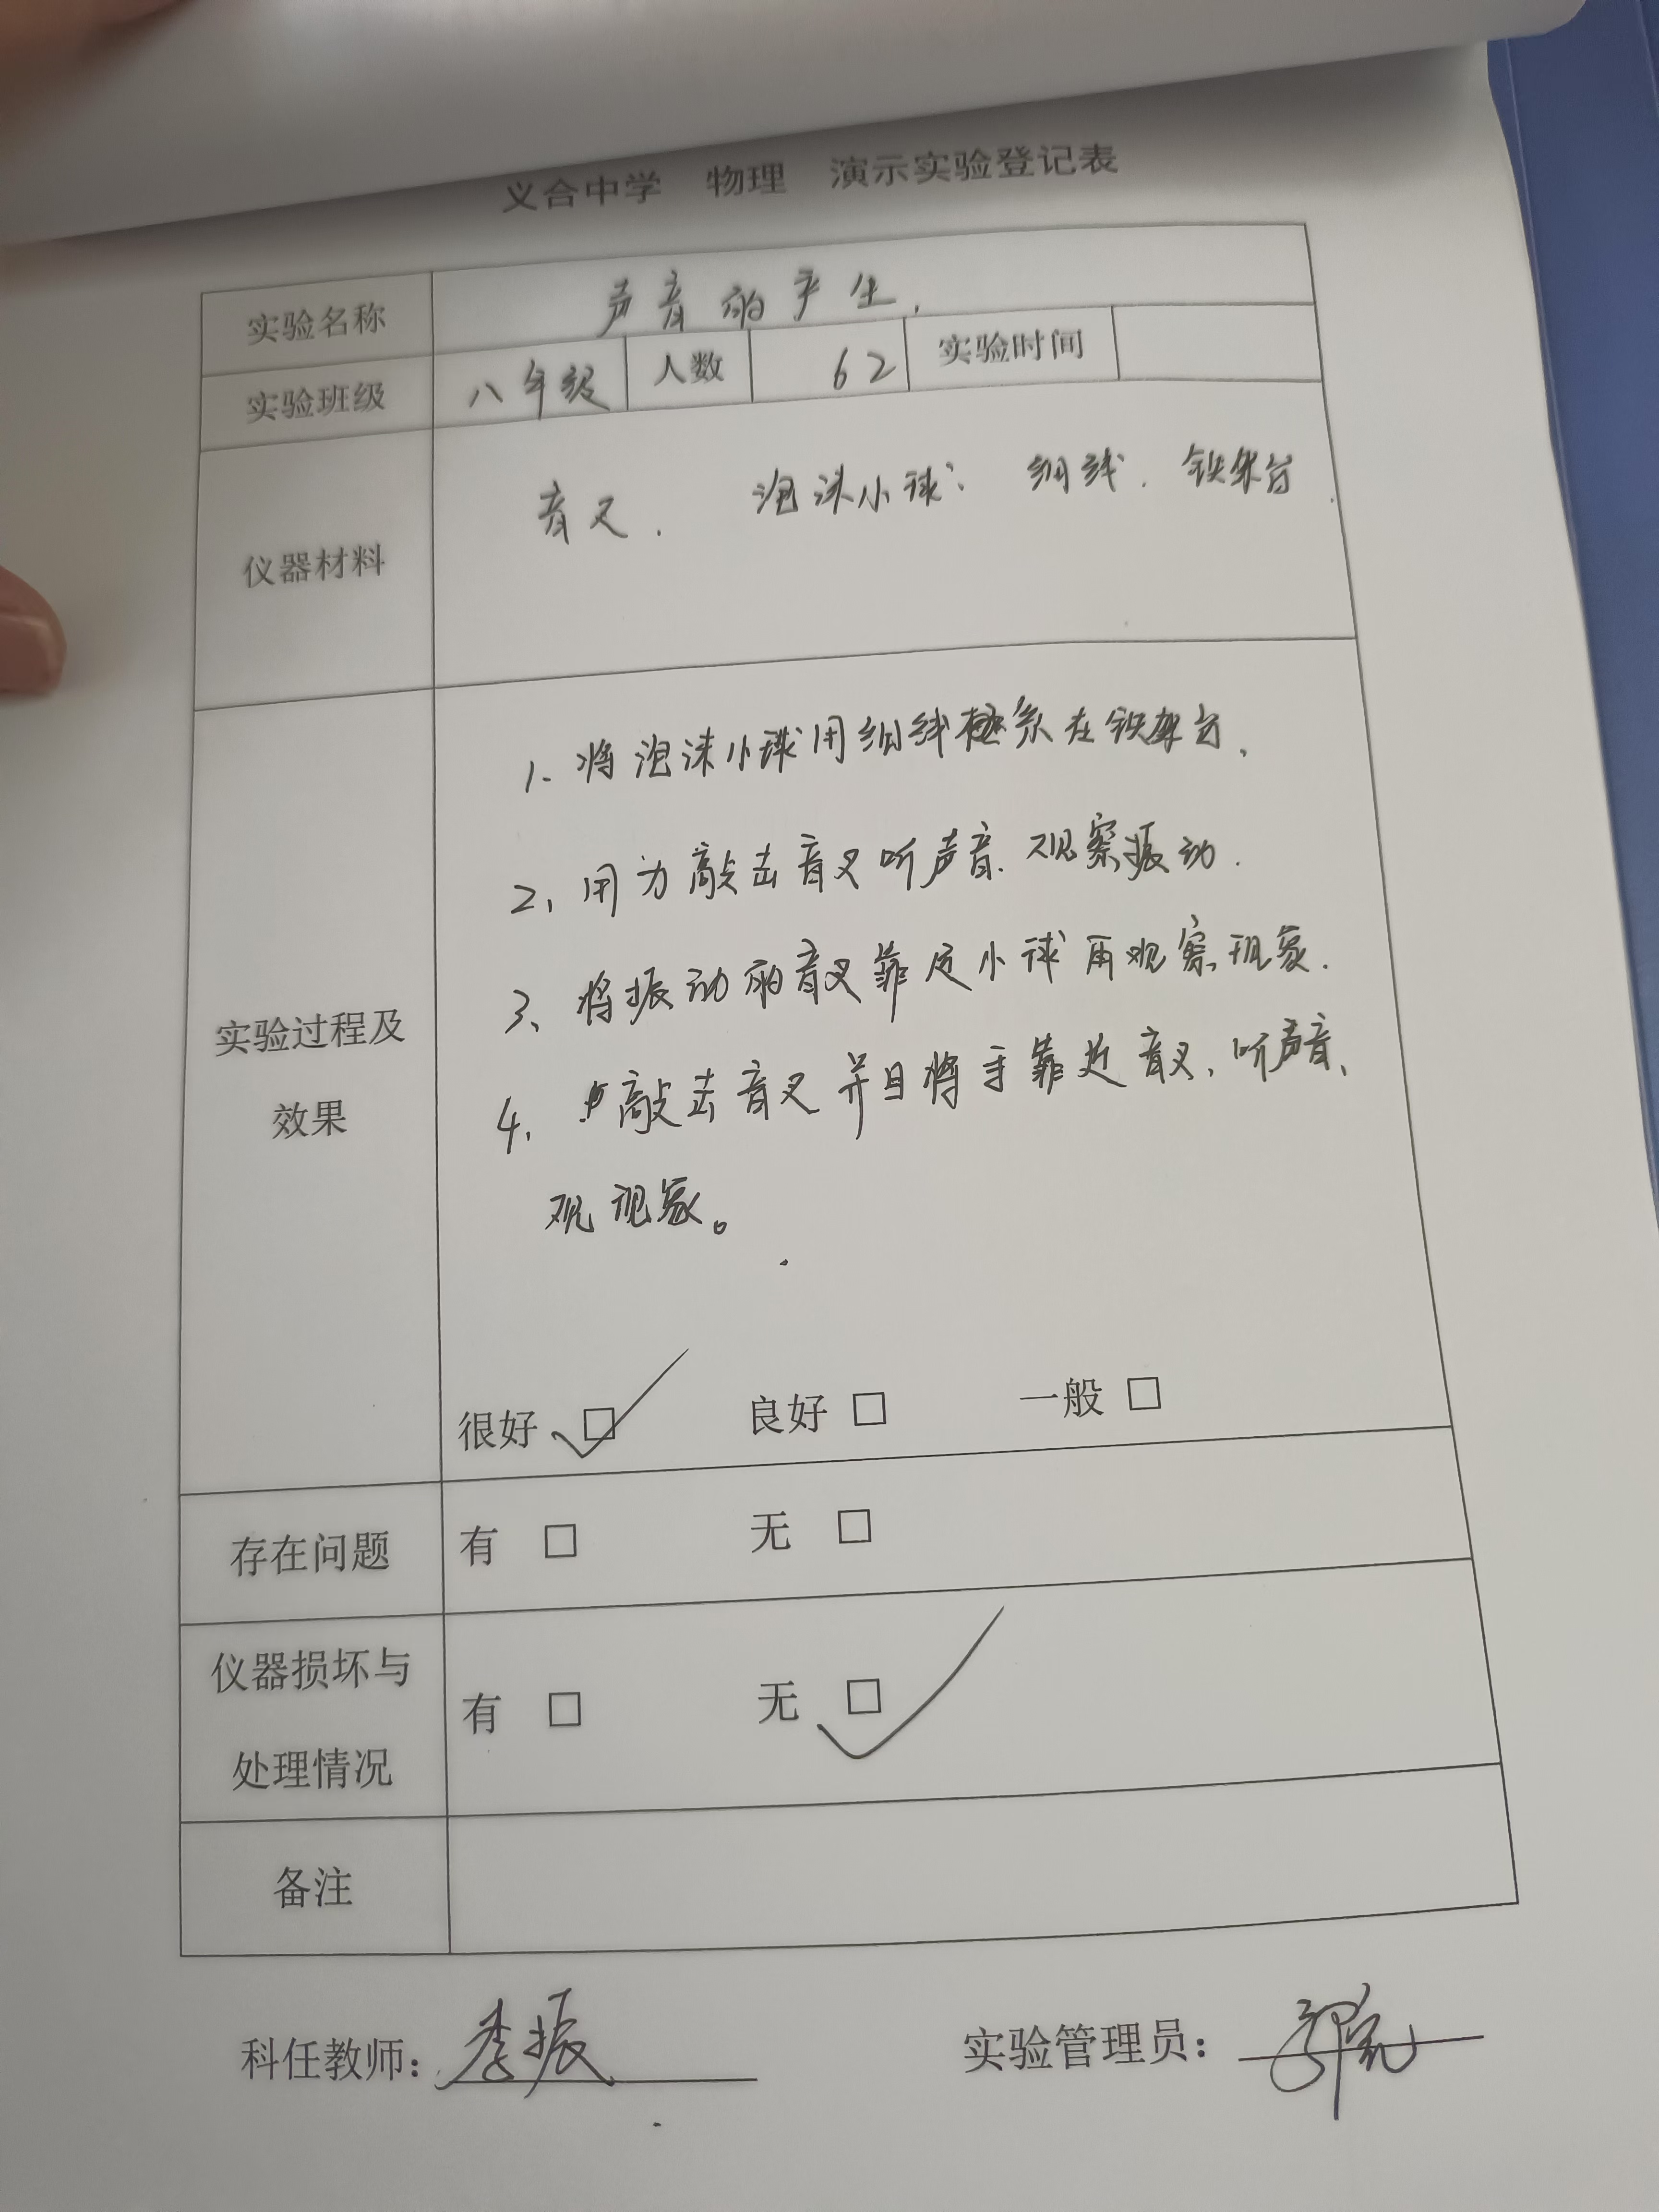 义合中学 物理 演示实验登记表
实验名称 声音的产生.
实验班级 八年级 人数 62 实验时间
仪器材料 音叉. 泡沫小球、细线. 铁架台.
1. 将泡沫小球用细线系在铁架台.
2、用力敲击音叉听声音.观察振动.
3、将振动的音叉靠近小球再观察现象.
实验过程及
4. 敲击音叉并且将手靠近音叉,听声音、
效果
观现象。
很好 □✓ 良好 □ 一般 □
存在问题 有 □ 无 □
仪器损坏与
有 □ 无 □✓
处理情况
备注
科任教师: 李振 实验管理员: